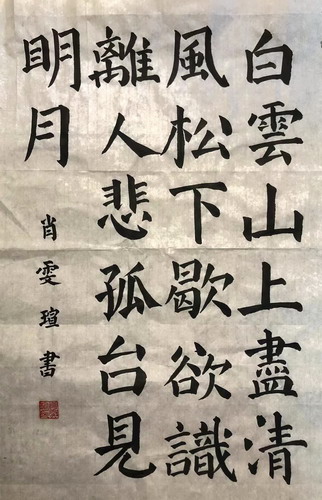 白雲山上盡清
風松下歇欲識
離人悲孤台見
明月
肖雯瑄書